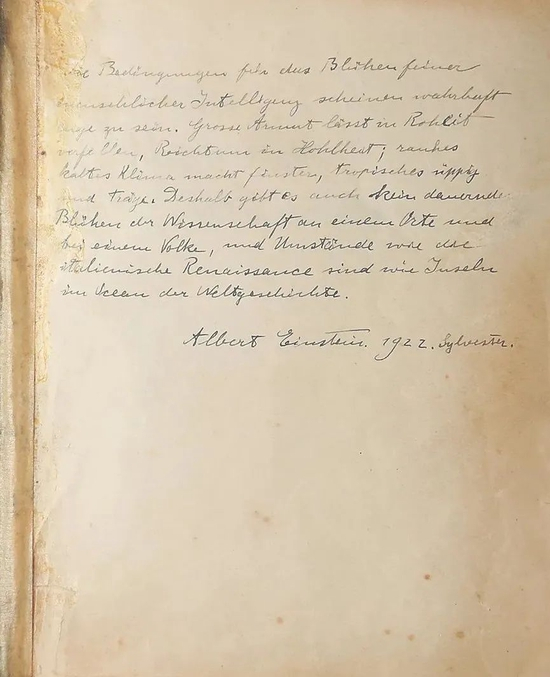 Bedingungen für das Blühen feiner
menschlicher Intelligenz scheinen wahrhaft
enge zu sein. Grosse Armut lässt in Rohheit
verfallen, Reichtum in Hohlheit; rauhes
kaltes Klima macht finster, tropisches üppig
und träge. Deshalb gibt es auch kein dauerndes
Blühen der Wissenschaft an einem Orte und
bei einem Volke, und Umstände wie die
italienische Renaissance sind wie Inseln
im Ocean der Weltgeschichte.
Albert Einstein. 1922. Sylvester.